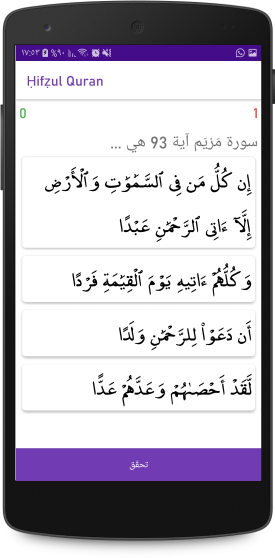 ١٧:٥٣ %٩٠
Ḥifẓul Quran
0 1
سورة مَرْيَم آية 93 هي ...
إِن كُلُّ مَن فِي ٱلسَّمَٰوَٰتِ وَٱلْأَرْضِ
إِلَّآ ءَاتِي ٱلرَّحْمَٰنِ عَبْدًا
وَكُلُّهُمْ ءَاتِيهِ يَوْمَ ٱلْقِيَٰمَةِ فَرْدًا
أَن دَعَوْا۟ لِلرَّحْمَٰنِ وَلَدًا
لَّقَدْ أَحْصَىٰهُمْ وَعَدَّهُمْ عَدًّا
تحقّق